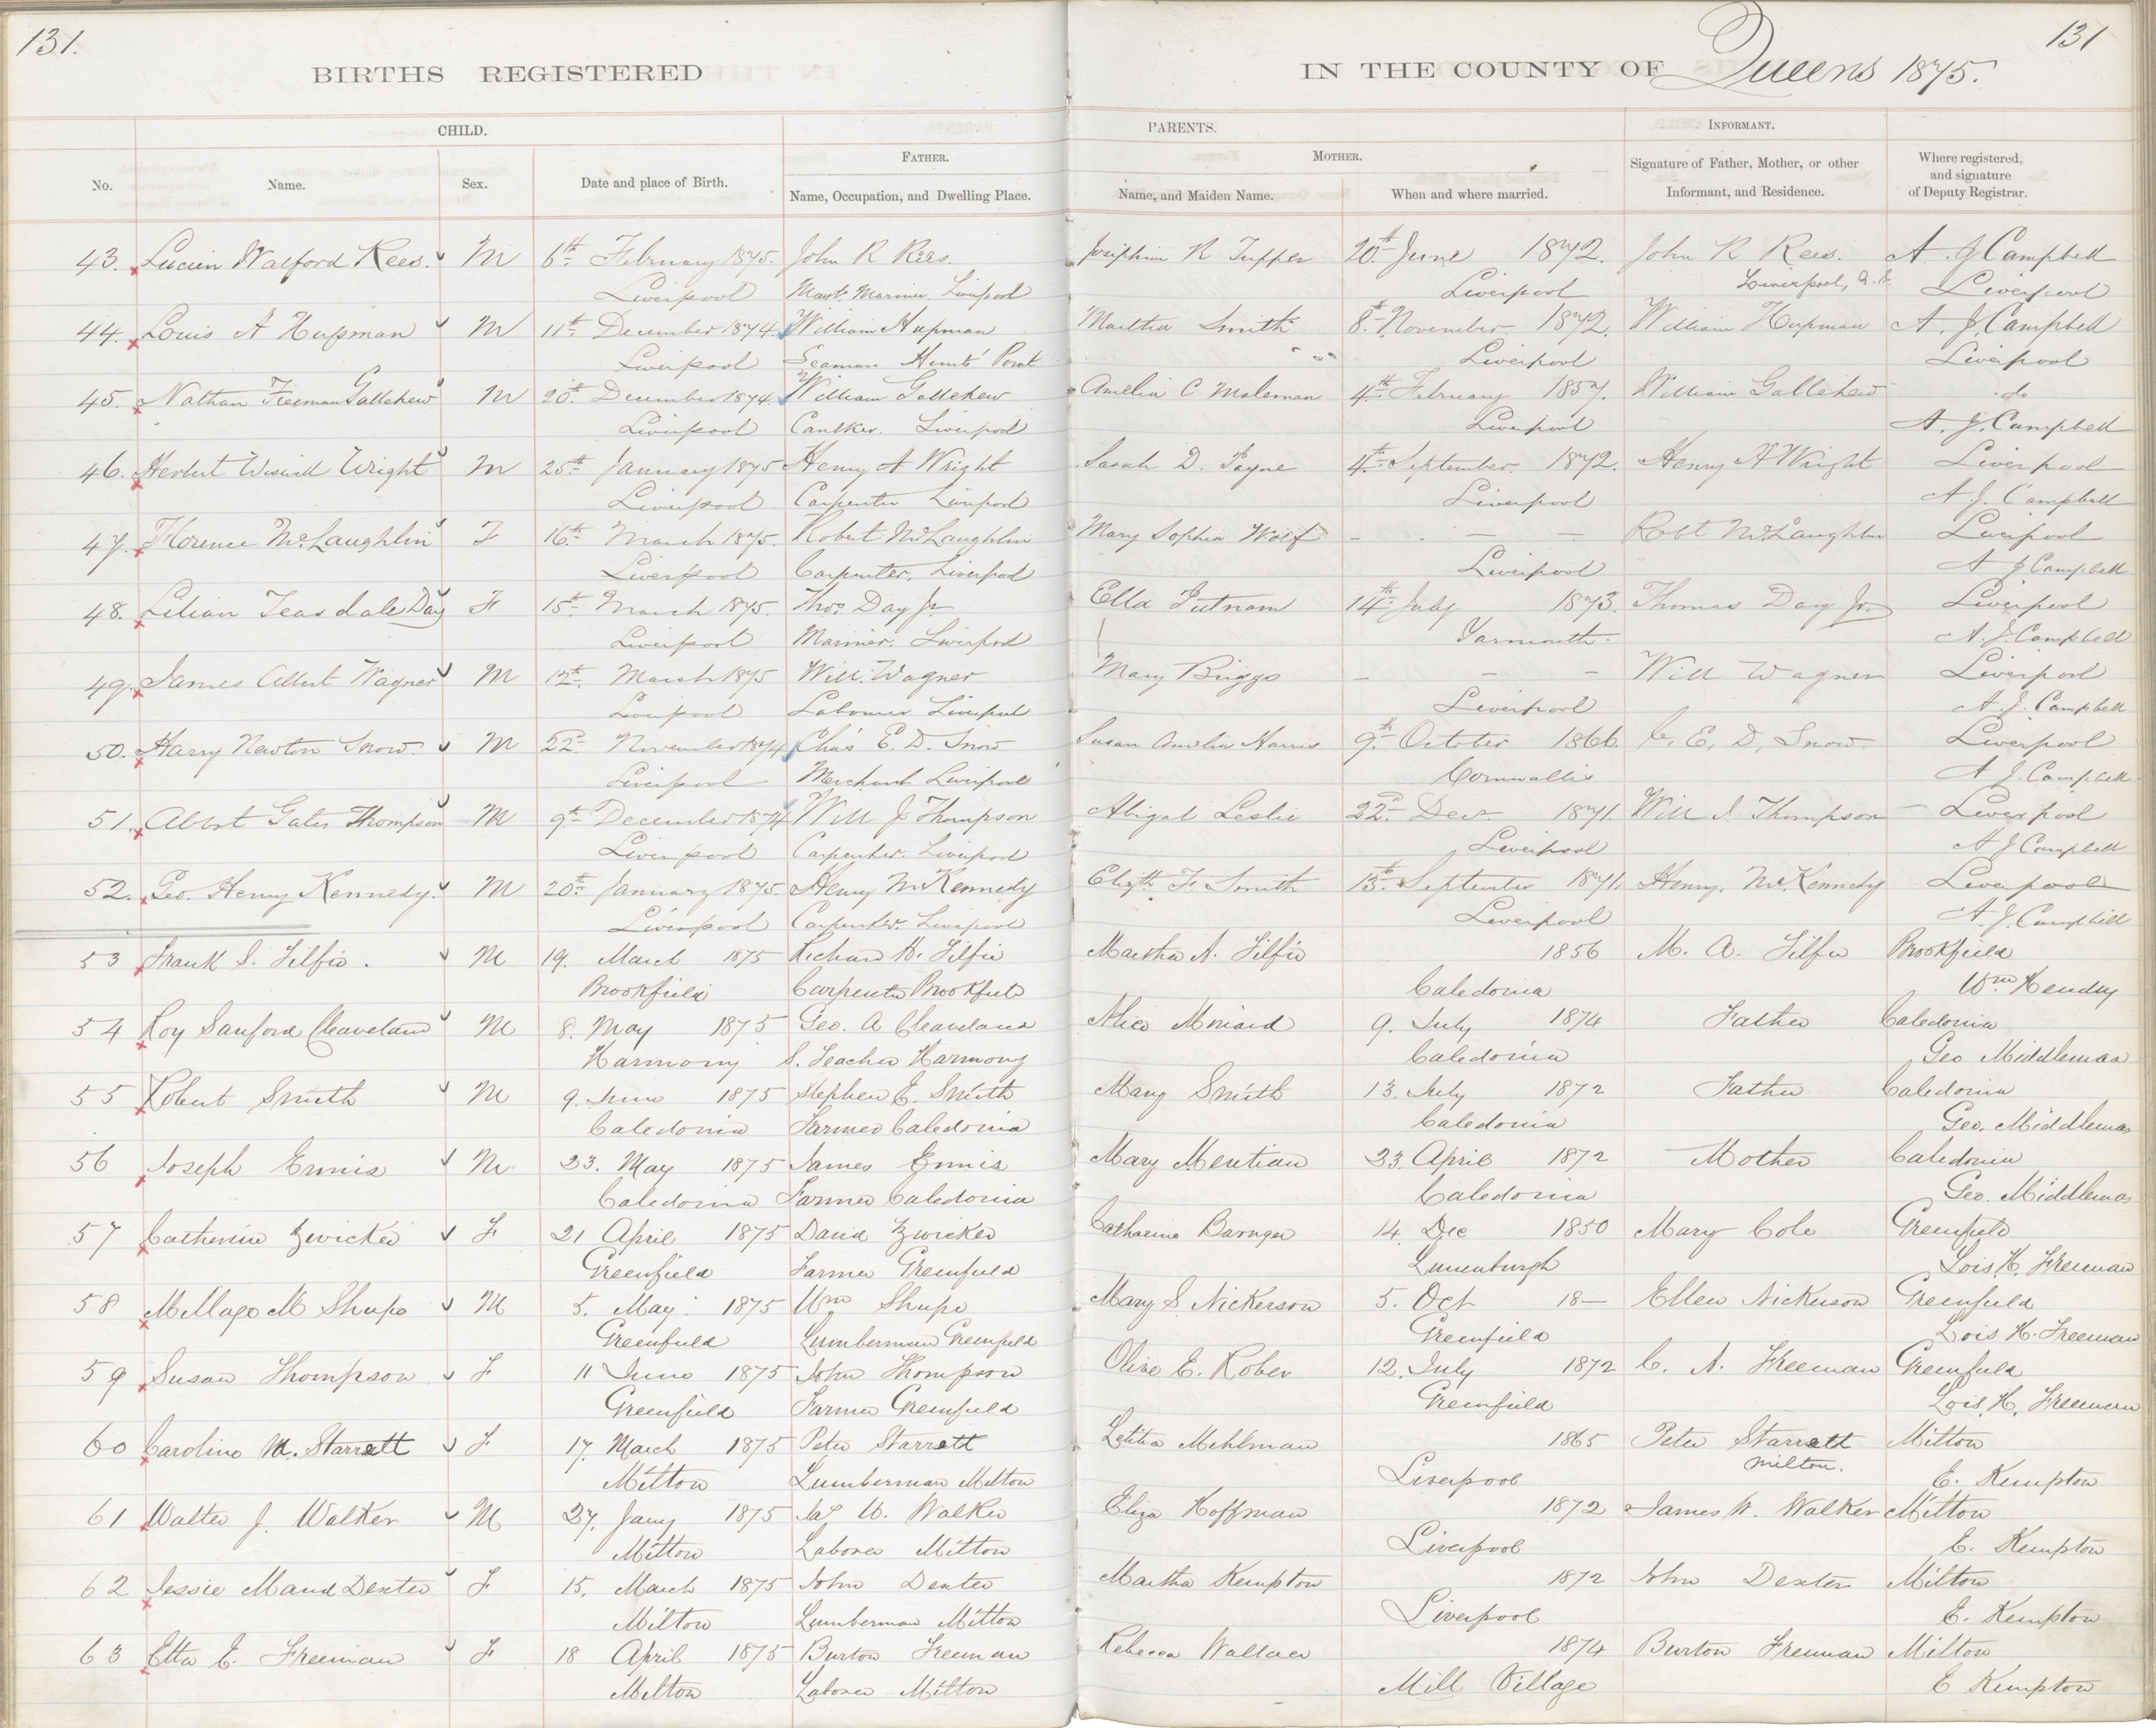 131.
131
BIRTHS REGISTERED
IN THE COUNTY OF Queens 1875.
CHILD.
PARENTS.
INFORMANT.
No.
Name.
Sex.
Date and place of Birth.
FATHER.
Name, Occupation, and Dwelling Place.
MOTHER.
Name, and Maiden Name.
When and where married.
Signature of Father, Mother, or other
Informant, and Residence.
Where registered,
and signature
of Deputy Registrar.
43. Lucien Walford Rees. M 6th February 1875. John R Rees. Josiphine R Tupper 20th June 1872. John R Rees. A. J Campbell
Liverpool Mast. Mariner. Liverpool Liverpool Liverpool, Liverpool
44. Louis A Hupman M 11th December 1874. William Hupman Martha Smith 8th November 1872. William Hupman A. J. Campbell
Liverpool Seaman Hunts' Point Liverpool Liverpool
45. Nathan Freeman Gallehew M 20th December 1874. William Gallehew Amelia C 4th February 1857. William Gallehew do
Liverpool Caulker. Liverpool Liverpool A. J. Campbell
46. Herbert Wright M 25th January 1875 Henry A Wright Sarah D. Payne 4th September 1872. Henry A Wright Liverpool
Liverpool Carpenter Liverpool Liverpool A J. Campbell
47. Florence McLaughlin F 16th March 1875. Robert McLaughlin Mary Sophia Wolf - - - - Robt McLaughlin Liverpool
Liverpool Carpenter, Liverpool Liverpool A J Campbell
48. Lilian Teasdale Day F 15th March 1875. Thos Day Jr Ella Putnam 14th July 1873. Thomas Day Jr. Liverpool
Liverpool Mariner. Liverpool Yarmouth. A. J. Campbell
49. James Albert Wagner M 12th March 1875 Will. Wagner Mary Briggs - - - Will Wagner Liverpool
Liverpool Labourer Liverpool Liverpool A. J. Campbell
50. Harry Newton Snow. M 22d November 1874 Chas E. D. Snow Susan Amelia Harris 9th October 1866. C. E. D. Snow. Liverpool
Liverpool Merchant Liverpool Cornwallis A J. Campbell
51. Albert Gates Thompson M 9th December 1874 Will J Thompson Abigal Leslie 22d Decr 1871. Will J. Thompson Liverpool
Liverpool Carpenter. Liverpool Liverpool A J Campbell
52. Geo. Henry Kennedy. M 20th January 1875. Henry McKennedy Elizth F. Smith 13th September 1871. Henry. McKennedy Liverpool
Liverpool Carpenter. Liverpool Liverpool A. J. Campbell
53 Frank S. Silfie. M 19. March 1875 Richard H. Silfie Martha A. Silfie 1856 M. A. Silfie Brookfield
Brookfield Carpenter Brookfield Caledonia Wm Hendry
54 Roy Sanford Cleaveland M 8. May 1875 Geo. A Cleaveland Alice Miniard 9. July 1874 Father Caledonia
Harmony S. Teacher Harmony Caledonia Geo Middlemas
55 Robert Smith M 9. June 1875 Stephen E. Smith Mary Smith 13. July 1872 Father Caledonia
Caledonia Farmer Caledonia Caledonia Geo. Middlemas
56 Joseph Ennis M 23. May 1875 James Ennis Mary 23. April 1872 Mother Caledonia
Caledonia Farmer Caledonia Caledonia Geo. Middlemas
57 Catherine Zwicker F 21 April 1875 David Zwicker Catharine 14. Dec 1850 Mary Cole Greenfield
Greenfield Farmer Greenfield Lunenburgh Lois H. Freeman
58 Millage M Shupe M 5. May. 1875 Wm Shupe Mary S. Nickerson 5. Oct 18— Ellen Nickerson Greenfield
Greenfield Lumberman Greenfield Greenfield Lois H. Freeman
59 Susan Thompson F 11 June 1875 John Thompson Olive E. Rober 12. July 1872 C. A. Freeman Greenfield
Greenfield Farmer Greenfield Greenfield Lois. H. Freeman
60 Caroline M. Starratt F 17. March 1875 Peter Starratt Letitia Mehlman 1865 Peter Starratt Milton
Milton Lumberman Milton Liverpool Milton. E. Kempton
61 Walter J. Walker M 27. Jany 1875 Jas W. Walker Eliza Hoffman 1872 James W. Walker Milton
Milton Laborer Milton Liverpool E. Kempton
62 Jessie Maud Dexter F 15. March 1875 John Dexter Martha Kempton 1872 John Dexter Milton
Milton Lumberman Milton Liverpool E. Kempton
63 Etta E. Freeman F 18 April 1875 Burton Freeman Rebecca Wallace 1874 Burton Freeman Milton
Milton Laborer Milton Mill Village E Kempton